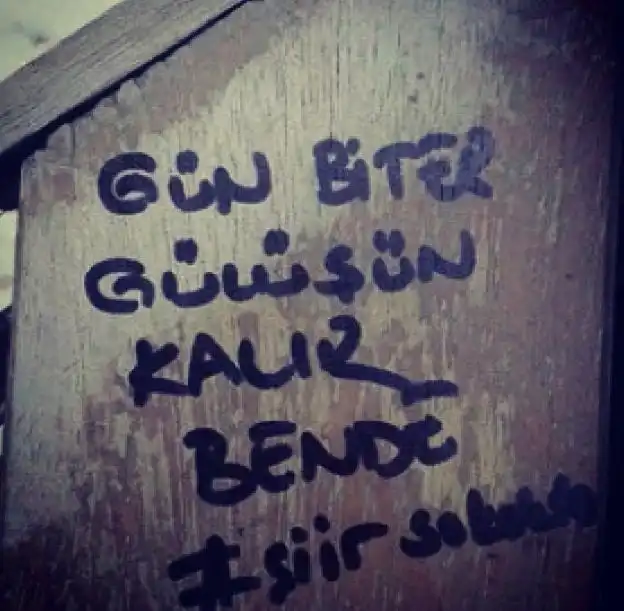 GÜN BİTER
GÜLÜŞÜN
KALIR
BENDE
#şiir sokakta